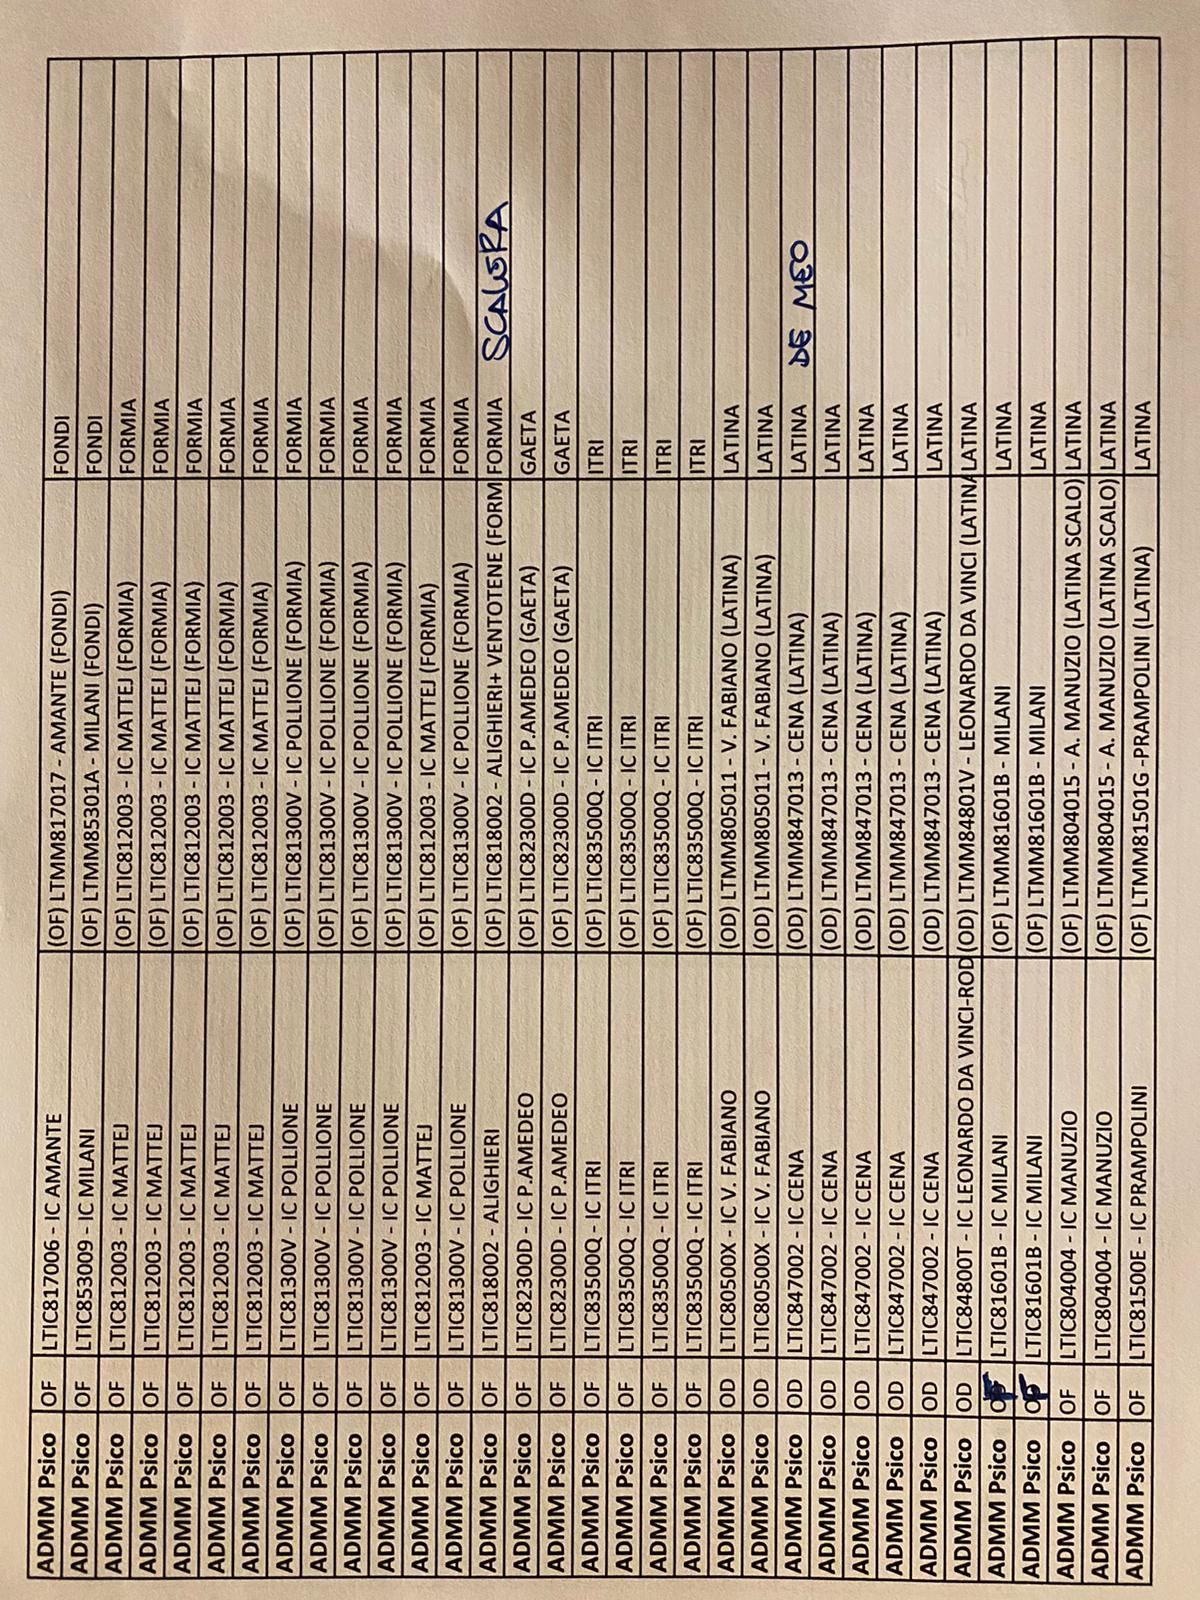 ADMM Psico OF LTIC817006 - IC AMANTE (OF) LTMM817017 - AMANTE (FONDI) FONDI
ADMM Psico OF LTIC853009 - IC MILANI (OF) LTMM85301A - MILANI (FONDI) FONDI
ADMM Psico OF LTIC812003 - IC MATTEJ (OF) LTIC812003 - IC MATTEJ (FORMIA) FORMIA
ADMM Psico OF LTIC812003 - IC MATTEJ (OF) LTIC812003 - IC MATTEJ (FORMIA) FORMIA
ADMM Psico OF LTIC812003 - IC MATTEJ (OF) LTIC812003 - IC MATTEJ (FORMIA) FORMIA
ADMM Psico OF LTIC812003 - IC MATTEJ (OF) LTIC812003 - IC MATTEJ (FORMIA) FORMIA
ADMM Psico OF LTIC812003 - IC MATTEJ (OF) LTIC812003 - IC MATTEJ (FORMIA) FORMIA
ADMM Psico OF LTIC81300V - IC POLLIONE (OF) LTIC81300V - IC POLLIONE (FORMIA) FORMIA
ADMM Psico OF LTIC81300V - IC POLLIONE (OF) LTIC81300V - IC POLLIONE (FORMIA) FORMIA
ADMM Psico OF LTIC81300V - IC POLLIONE (OF) LTIC81300V - IC POLLIONE (FORMIA) FORMIA
ADMM Psico OF LTIC81300V - IC POLLIONE (OF) LTIC81300V - IC POLLIONE (FORMIA) FORMIA
ADMM Psico OF LTIC812003 - IC MATTEJ (OF) LTIC812003 - IC MATTEJ (FORMIA) FORMIA
ADMM Psico OF LTIC81300V - IC POLLIONE (OF) LTIC81300V - IC POLLIONE (FORMIA) FORMIA
ADMM Psico OF LTIC818002 - ALIGHIERI (OF) LTIC818002 - ALIGHIERI+ VENTOTENE (FORM FORMIA SCALERA
ADMM Psico OF LTIC82300D - IC P.AMEDEO (OF) LTIC82300D - IC P.AMEDEO (GAETA) GAETA
ADMM Psico OF LTIC82300D - IC P.AMEDEO (OF) LTIC82300D - IC P.AMEDEO (GAETA) GAETA
ADMM Psico OF LTIC83500Q - IC ITRI (OF) LTIC83500Q - IC ITRI ITRI
ADMM Psico OF LTIC83500Q - IC ITRI (OF) LTIC83500Q - IC ITRI ITRI
ADMM Psico OF LTIC83500Q - IC ITRI (OF) LTIC83500Q - IC ITRI ITRI
ADMM Psico OF LTIC83500Q - IC ITRI (OF) LTIC83500Q - IC ITRI ITRI
ADMM Psico OD LTIC80500X - IC V. FABIANO (OD) LTMM805011 - V. FABIANO (LATINA) LATINA
ADMM Psico OD LTIC80500X - IC V. FABIANO (OD) LTMM805011 - V. FABIANO (LATINA) LATINA
ADMM Psico OD LTIC847002 - IC CENA (OD) LTMM847013 - CENA (LATINA) LATINA DE MEO
ADMM Psico OD LTIC847002 - IC CENA (OD) LTMM847013 - CENA (LATINA) LATINA
ADMM Psico OD LTIC847002 - IC CENA (OD) LTMM847013 - CENA (LATINA) LATINA
ADMM Psico OD LTIC847002 - IC CENA (OD) LTMM847013 - CENA (LATINA) LATINA
ADMM Psico OD LTIC847002 - IC CENA (OD) LTMM847013 - CENA (LATINA) LATINA
ADMM Psico OD LTIC84800T - IC LEONARDO DA VINCI-ROD (OD) LTMM84801V - LEONARDO DA VINCI (LATINA LATINA
ADMM Psico OF LTIC81601B - IC MILANI (OF) LTMM81601B - MILANI LATINA
ADMM Psico OF LTIC81601B - IC MILANI (OF) LTMM81601B - MILANI LATINA
ADMM Psico OF LTIC804004 - IC MANUZIO (OF) LTMM804015 - A. MANUZIO (LATINA SCALO) LATINA
ADMM Psico OF LTIC804004 - IC MANUZIO (OF) LTMM804015 - A. MANUZIO (LATINA SCALO) LATINA
ADMM Psico OF LTIC81500E - IC PRAMPOLINI (OF) LTMM81501G -PRAMPOLINI (LATINA) LATINA